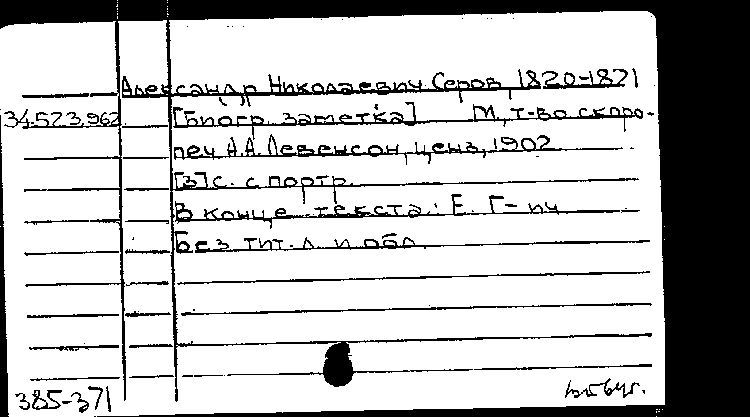 Александр Николаевич Серов, 1820-1871
34.523.962 [Биогр. заметка] М., т-во скоро-
печ. А.А. Левенсон, ценз, 1902
[3] с. с портр.
В конце текста: Е. Г-ич
Без тит. л. и обл.
385-371